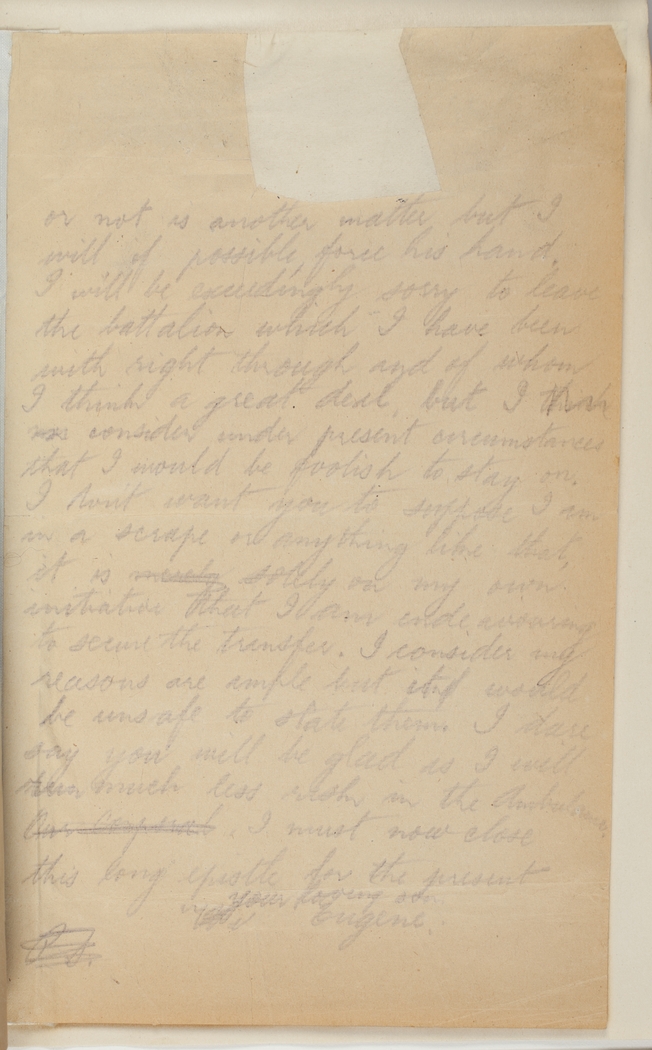 or not is another matter but I
will if possible force his hand.
I will be exceedingly sorry to leave
the battalion which I have been
with right through and of whom
I think a great deal, but I
consider under present circumstances
that I would be foolish to stay on.
I don't want you to suppose I am
in a scrape or anything like that,
it is merely solely on my own
initiative that I am endeavouring
to secure the transfer. I consider my
reasons are ample but it would
be unsafe to state them. I dare
say you will be glad as I will
run much less risk in the Ambulance.
Our corporal . I must now close
this long epistle for the present
your loving son
Eugene.